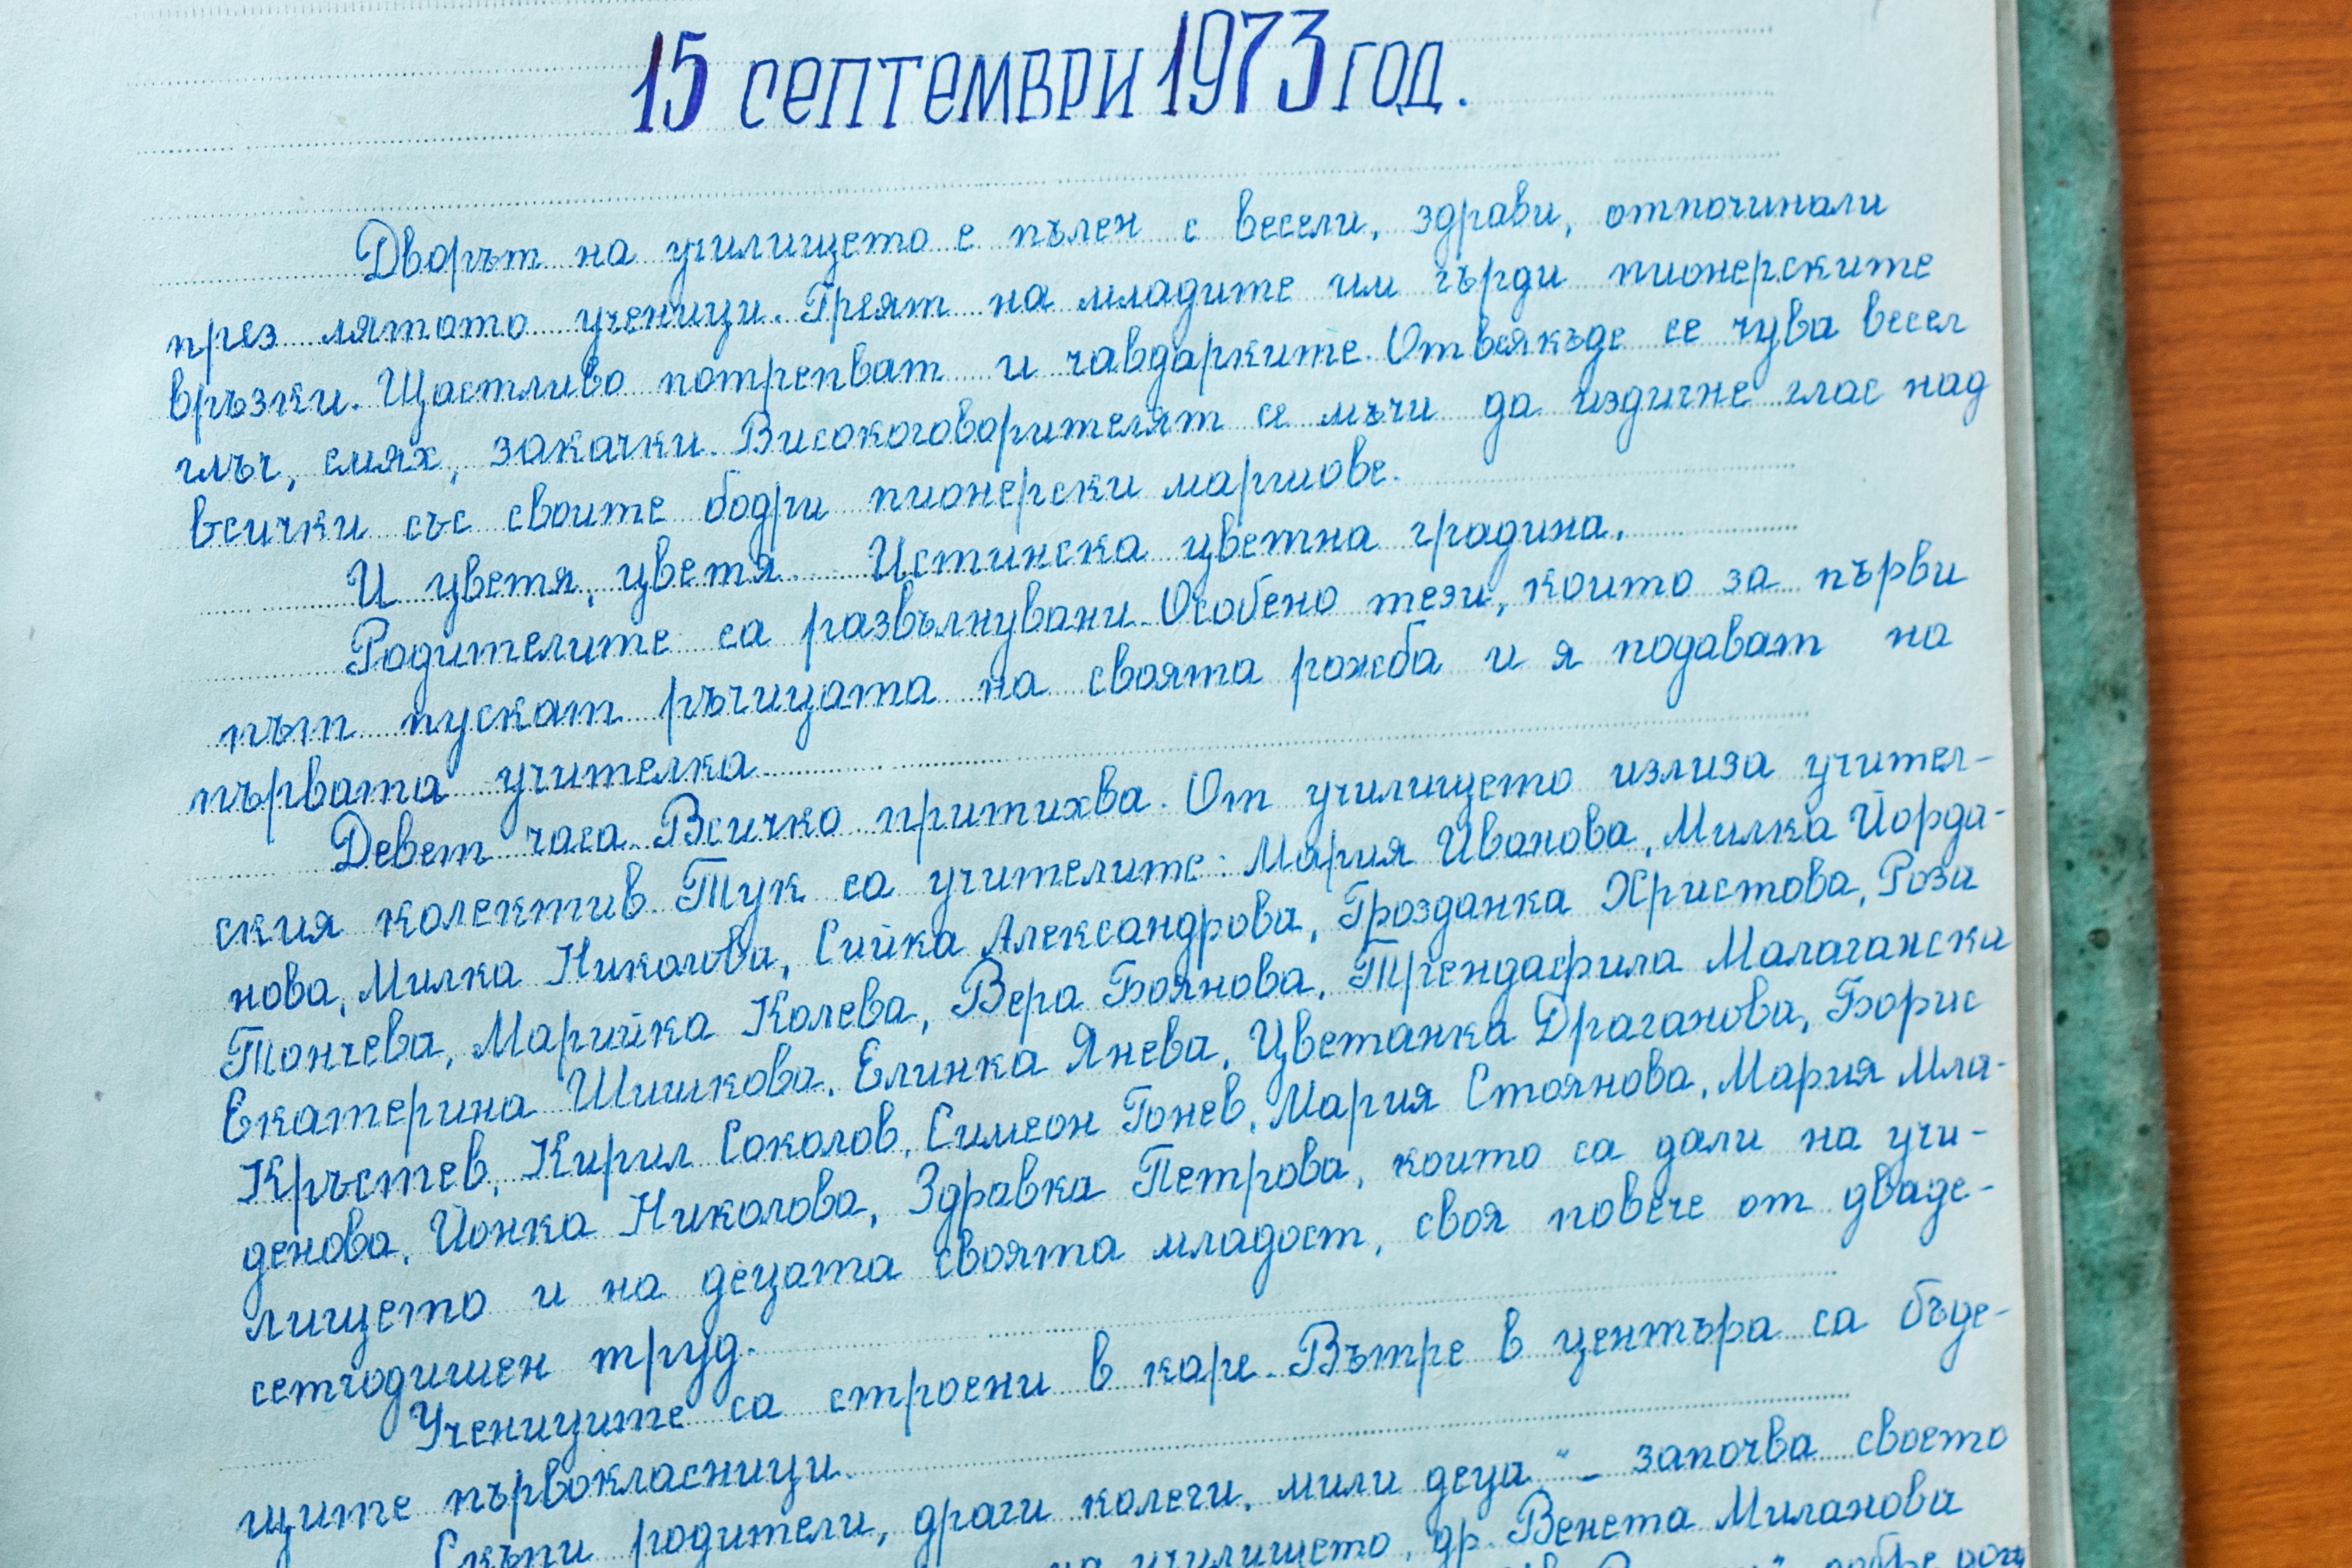 15 септември 1973 год.
Дворът на училището е пълен с весели, здрави, отпочинали
през лятото ученици. Греят на младите им гърди пионерските
връзки. Щастливо потрепват и чавдарките. Отвсякъде се чува весел
глъч, смях, закачки. Високоговорителят се мъчи да издигне глас над
всички със своите бодри пионерски маршове.
И цветя, цветя... Истинска цветна градина.
Родителите са развълнувани. Особено тези, които за първи
път пускат ръчицата на своята рожба и я подават на
първата учителка.
Девет часа. Всичко притихва. От училището излиза учител-
ския колектив. Тук са учителите: Мария Иванова, Милка Йорда-
нова, Милка Николова, Сийка Александрова, Грозданка Христова, Роза
Тончева, Марийка Колева, Вера Боянова, Трендафила Малаганска
Екатерина Шишкова, Елинка Янева, Цветанка Драганова, Борис
Кръстев, Кирил Соколов, Симеон Гонев, Мария Стоянова, Мария Мла-
денова, Йонка Николова, Здравка Петрова, които са дали на учи-
лището и на децата своята младост, своя повече от дваде-
сетгодишен труд.
Учениците са строени в каре. Вътре в центъра са бъде-
щите първокласници.
Скъпи родители, драги колеги, мили деца" – започва своето
на училището, др. Венета Миланова
добре дош